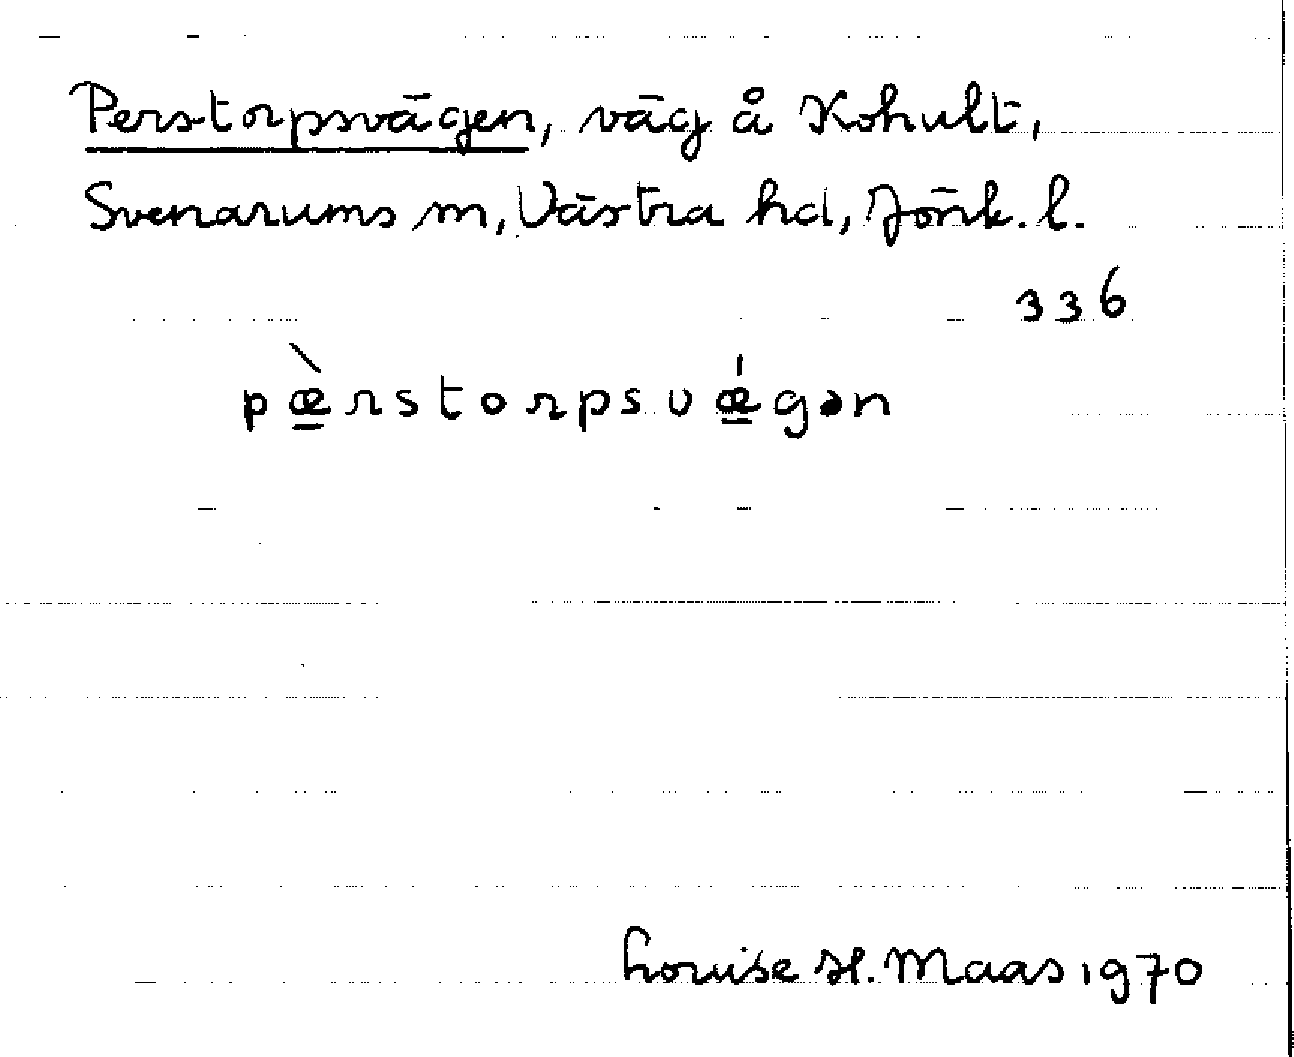 Perstorpsvägen, väg å Kohult,
Svenarums sn, Västra hd, Jönk. l.
336
pæ̱̀rstorpsvǽ̱gən
Louise H. Maas 1970